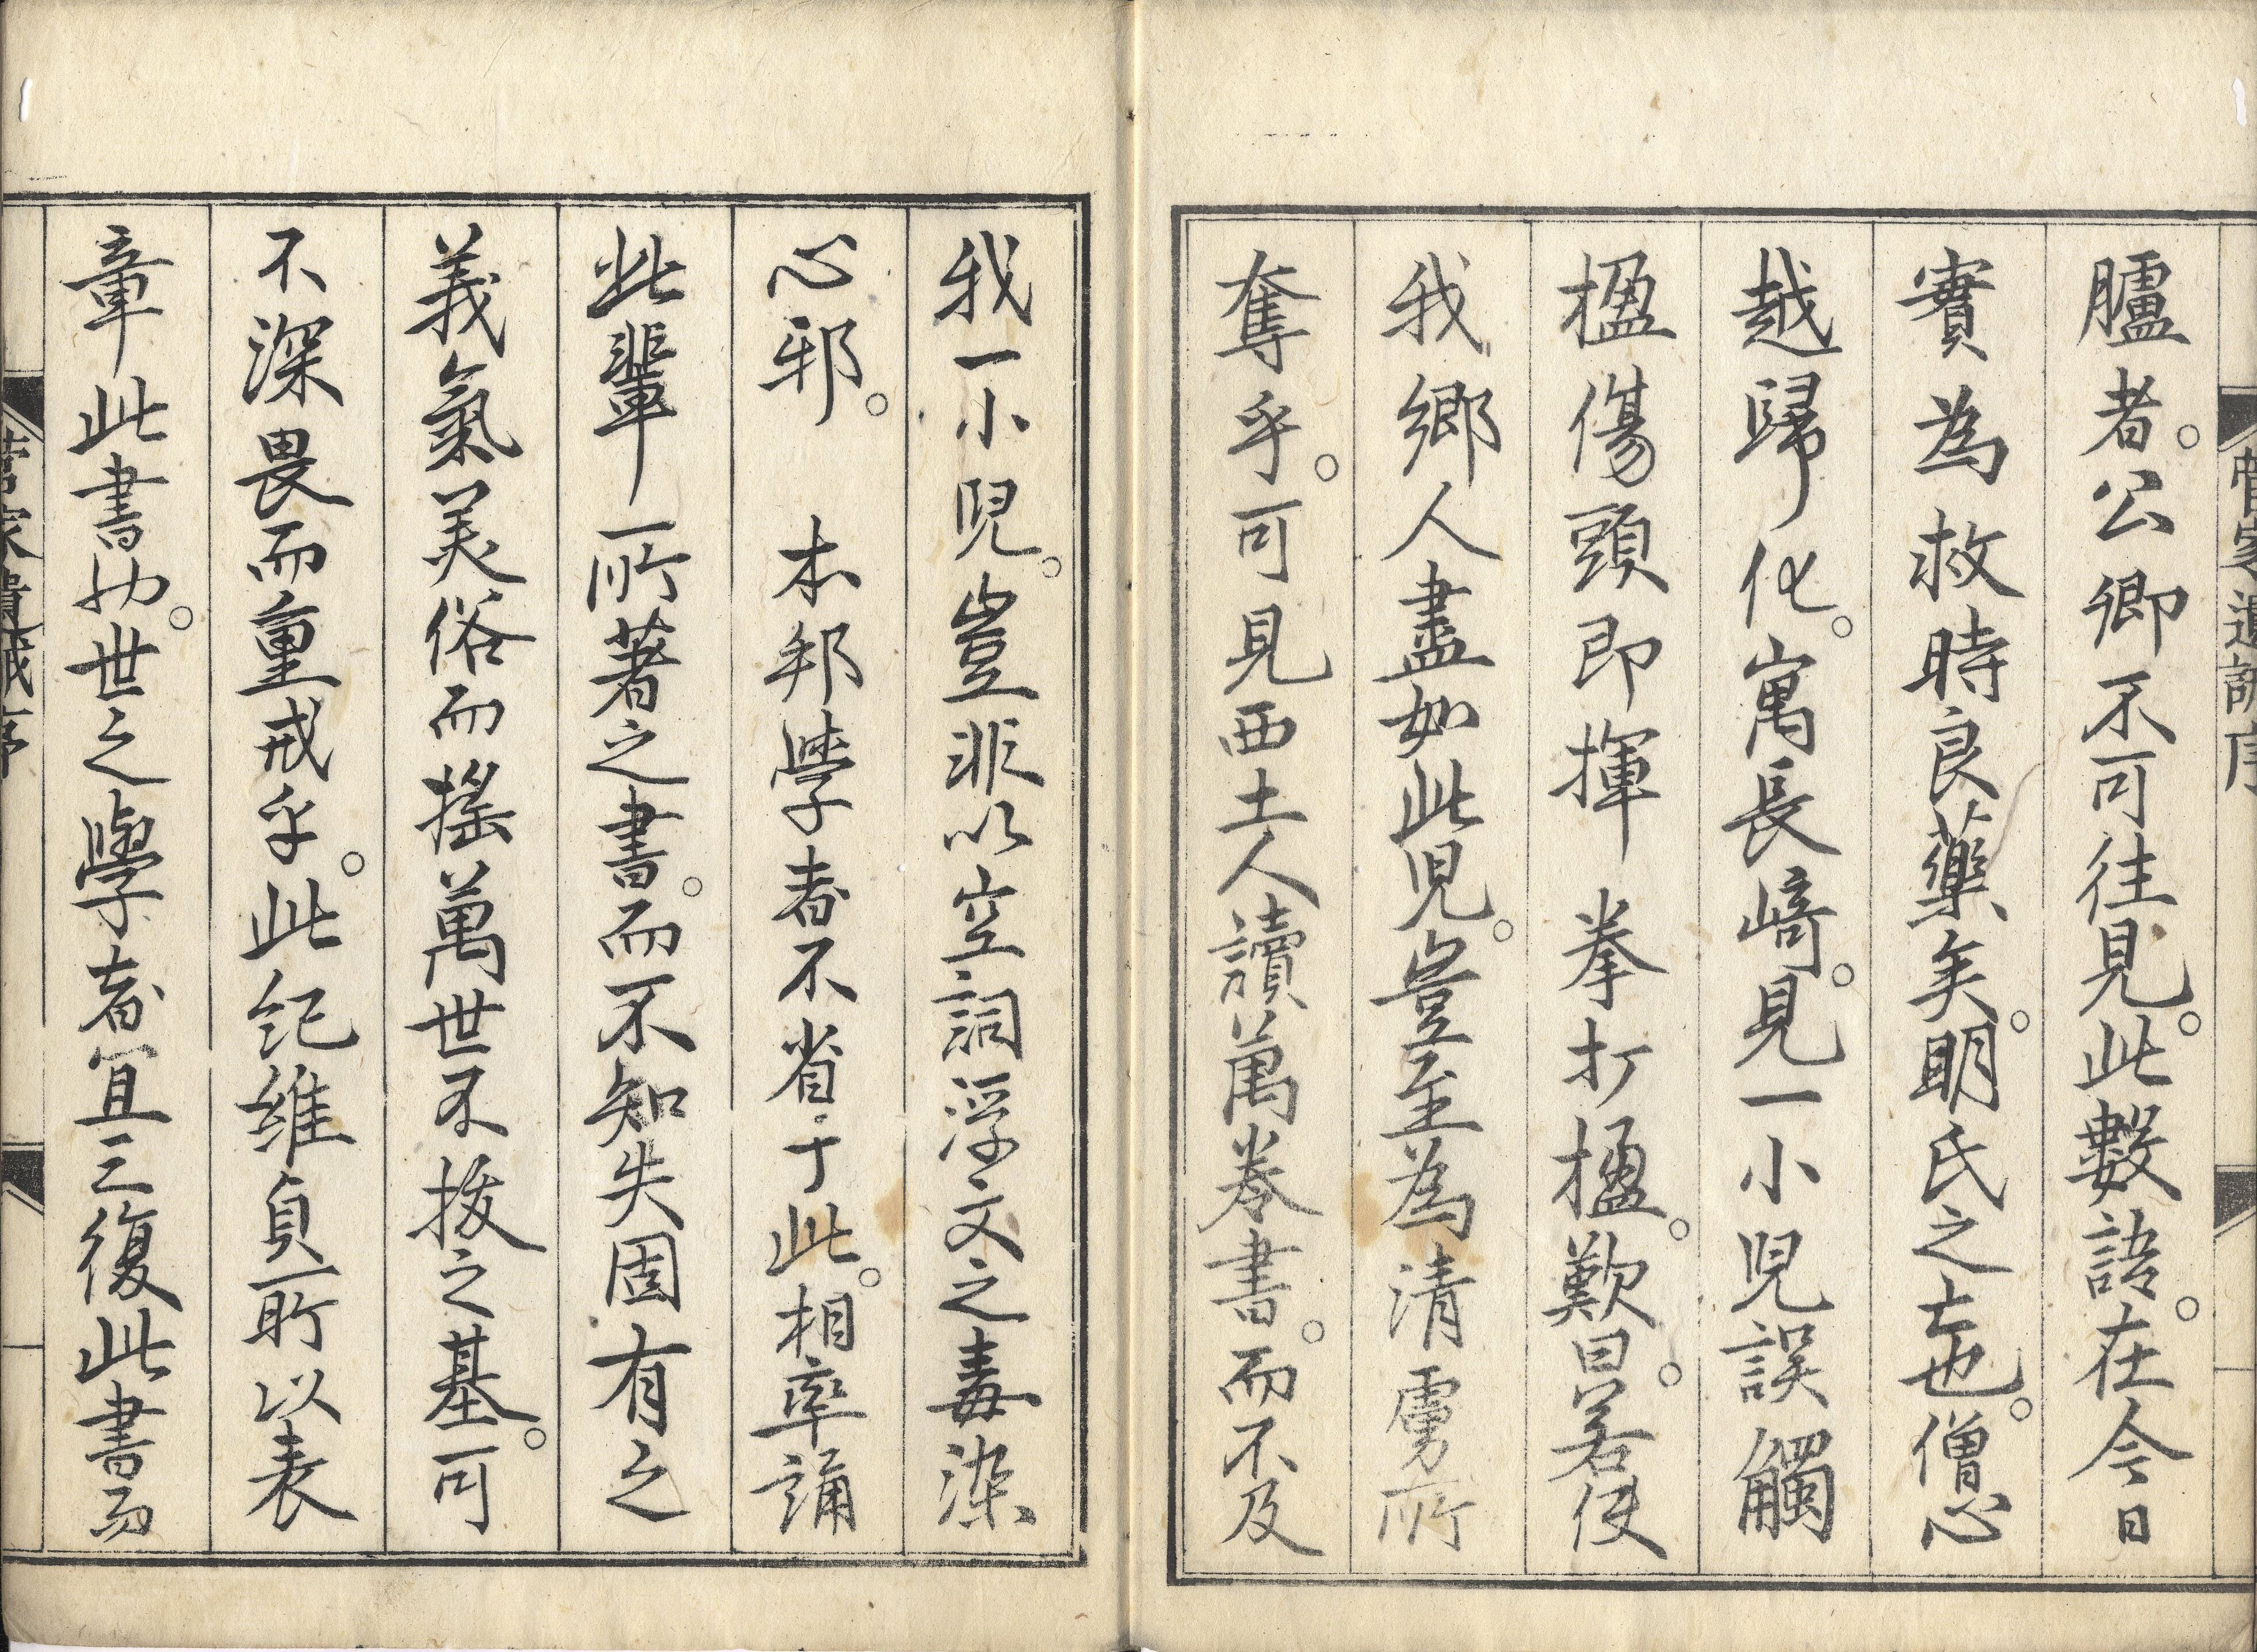 臚者。公卿不可往見。此數語。在今日
實為救時良藥矣。明氏之亡也。僧心
越歸化。寓長﨑。見一小児誤觸
楹傷頭即揮拳打楹。歎曰。若使
我鄉人盡如此児。豈至為清虜所
奪乎。可見西土人讀萬卷書。而不及
我一小児。豈非以空詞浮文之毒染
心邪。 本邦學者不省于此。相率誦
此輩所著之書。而不知失固有之
義氣美俗而搖萬世不拔之基。可
不深畏而重戒乎。此紀維貞所以表
章此書也。世之學者宜三復此書而
菅家遺誡序
菅家遺誡序